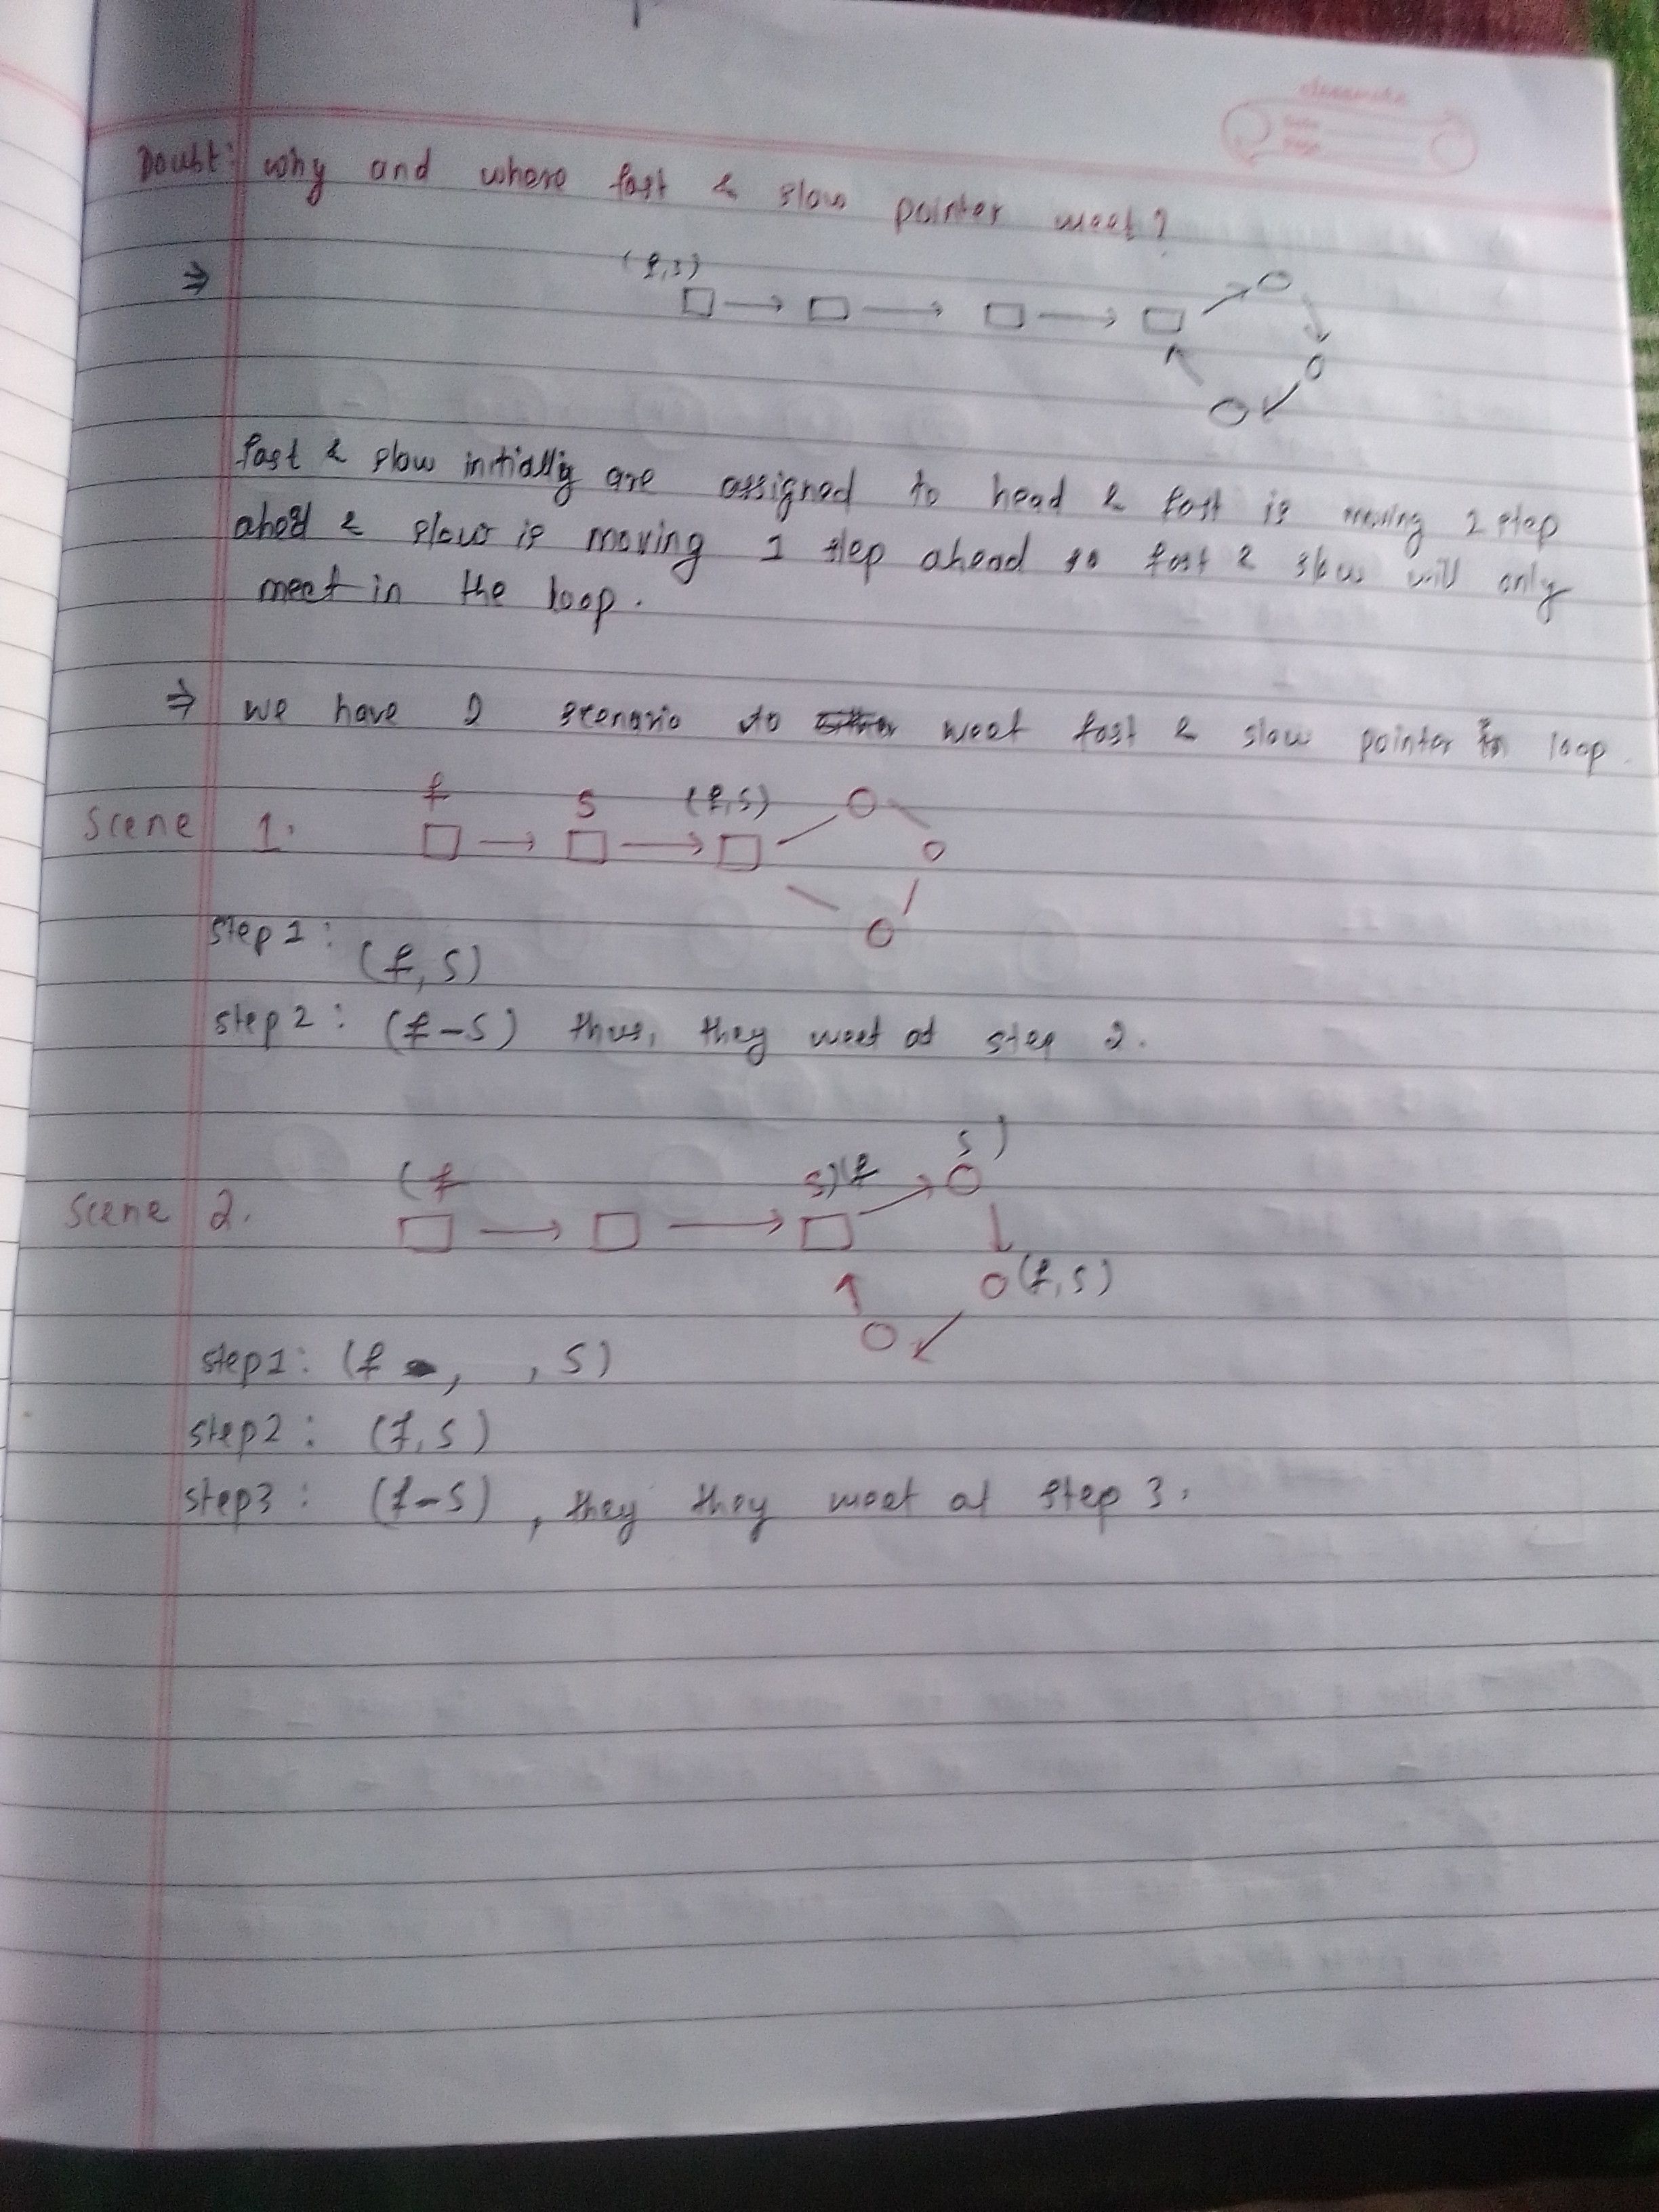 classmate
Date
Page
Doubt: why and where fast & slow pointer meet?
⇒ (f,s)
fast & slow initially are assigned to head & fast is moving 2 step
ahead & slow is moving 1 step ahead so fast & slow will only
meet in the loop.
⇒ we have 2 scenario to meet fast & slow pointer in loop.
f s (f,s)
Scene 1.
step 1:
(f,s)
step 2: (f-s) thus, they meet at step 2.
s)
(f s)(f
Scene 2.
(f,s)
step1: (f , , s)
step2: (f,s)
step3: (f-s), they they meet at step 3.